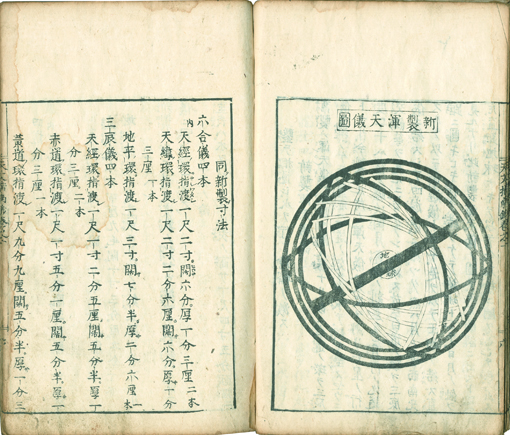 新製渾天儀圖
地球
同新製寸法
六合儀四本
内天經環指渡一尺二寸。闊六分厚一分三厘二本
天緯環指渡一尺二寸二分六厘。闊六分。厚一分
三厘一本
地平環指渡一尺三寸。闊七分半。厚二分六厘一本
三辰儀四本
天經環指渡一尺一寸二分五厘。闊五分半。厚一
分三厘二本
赤道環指渡一尺一寸五分一厘。闊五分半。厚一
分三厘一本
黃道環指渡一尺九分九厘。闊五分半。厚一分三